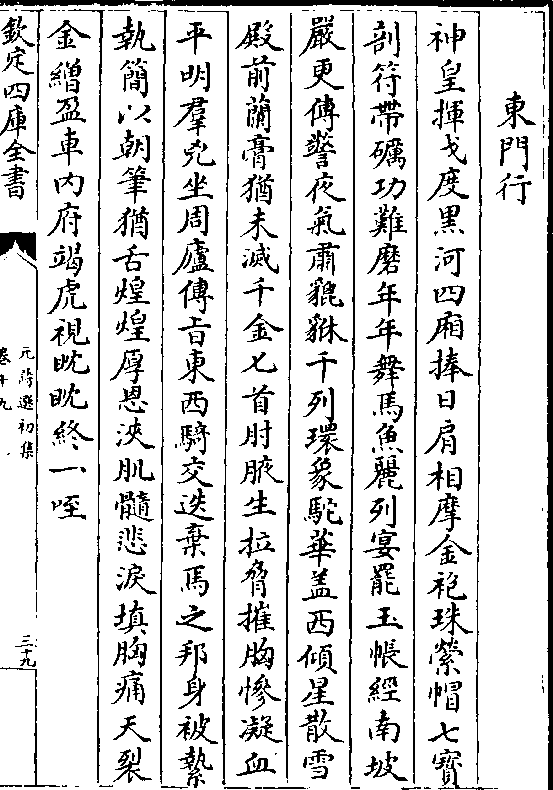 東門行
神皇揮戈度黑河四廂捧日肩相摩金袍珠縈帽七寶
剖符帶礪功難磨年年舞馬魚麗列宴罷玉帳經南坡
嚴更傳警夜氣肅貔貅千列環象駝華盖西傾星散雪
殿前蘭膏猶未滅千金匕首肘腋生拉脅摧胸慘凝血
平明羣兇坐周廬傳㫖東西騎交迭棄馬之邦身被縶
執簡以朝筆猶舌煌煌厚恩浹肌髓悲淚填胸痛天裂
金繒盈車内府竭虎視眈眈終一咥
欽定四庫全書
元詩選初集
卷十九
三十九